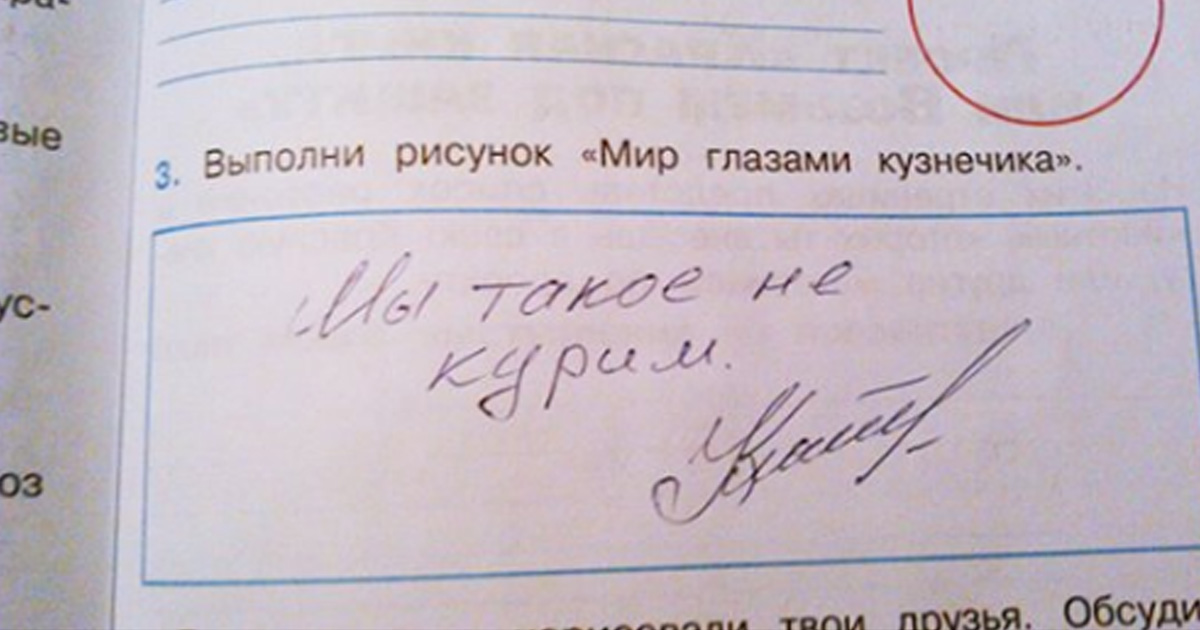 вые
ус-
оз
3. Выполни рисунок «Мир глазами кузнечика».
Мы такое не
курим.
твои друзья. Обсуди